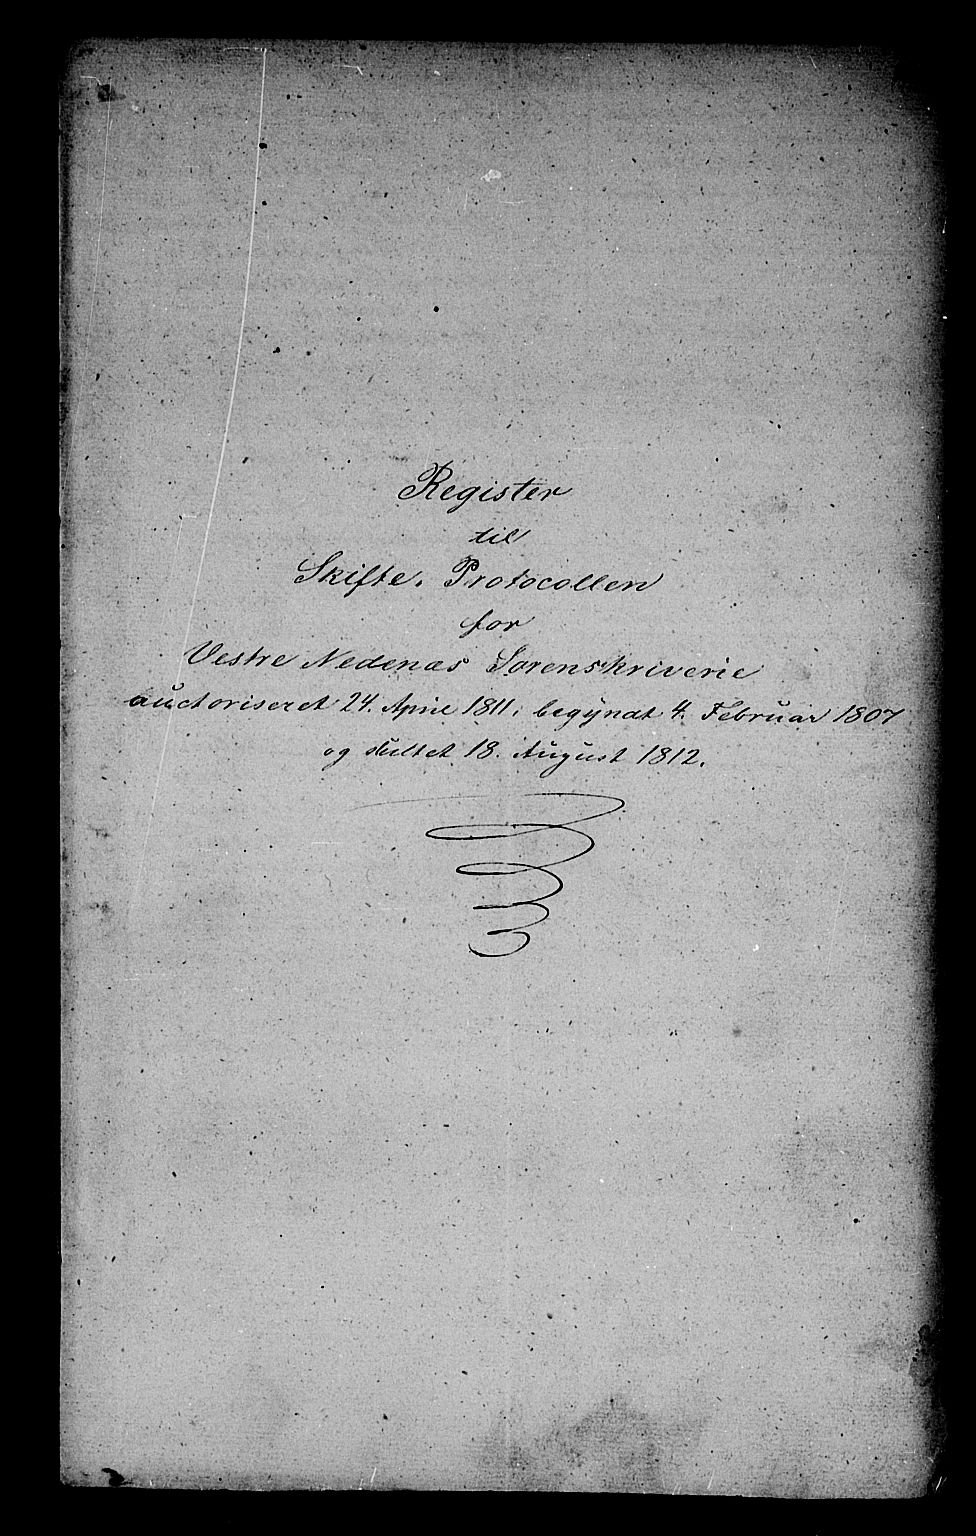 Register
til
Skifte. Protocollen
for
Vestre Nedenæs Sorenskriverie
auctoriseret 24. April 1811, begÿnat 4. Februar 1807
og sluttet 18. August 1812.